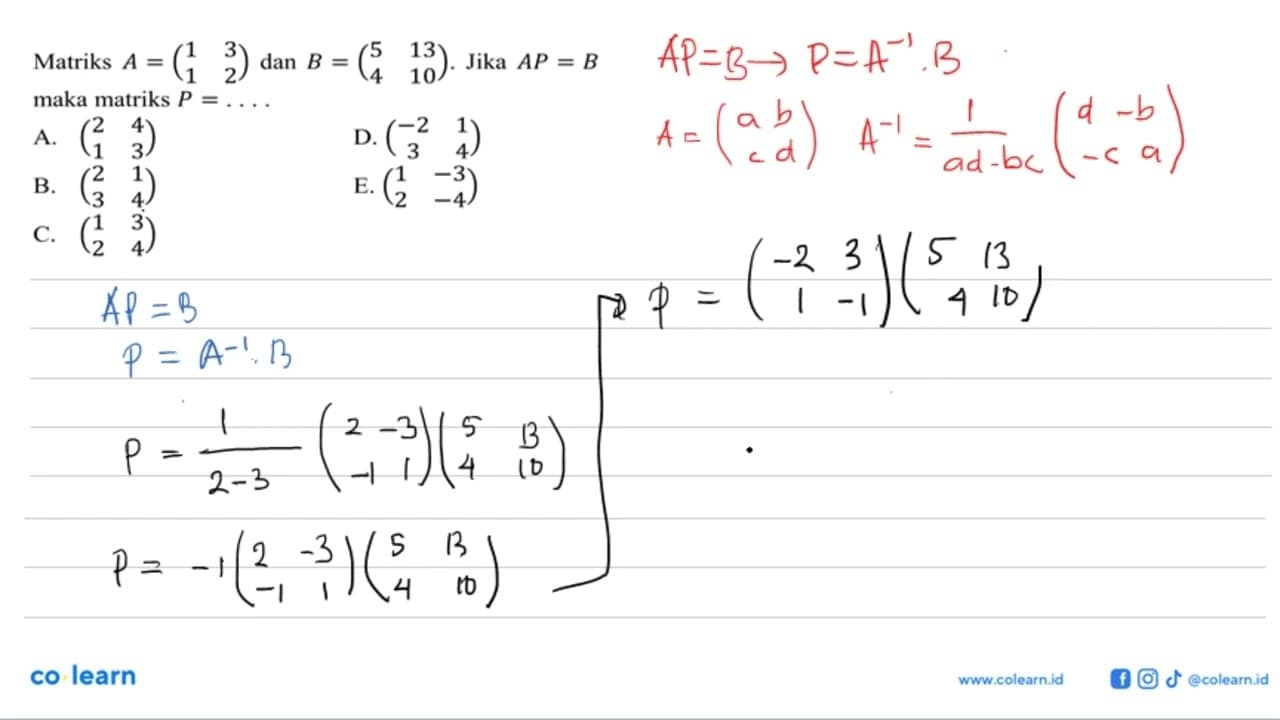 Matriks A = (1 3 1 2) dan B = (5 13 4 10). Jika AP = B
maka matriks P = . . . .
A. (2 4 1 3) D. (-2 1 3 4)
B. (2 1 3 4) E. (1 -3 2 -4)
C. (1 3 2 4)
AP=B → P=A⁻¹.B
A = (a b c d) A⁻¹ = 1/(ad-bc) (d -b -c a)
AP = B
P = A⁻¹. B
P = 1/(2-3) (2 -3 -1 1)(5 13 4 10)
P = -1(2 -3 -1 1)(5 13 4 10)
P = (-2 3 1 -1)(5 13 4 10)
co learn
www.colearn.id
@colearn.id